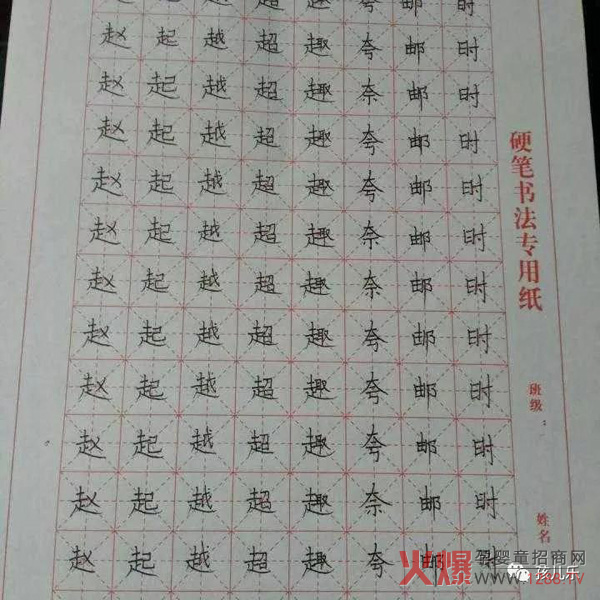 赵起越超趣夸邮时
赵起越超趣奈邮时
赵起越超趣夸邮时
赵起越超趣夸邮时
赵起越超趣奈邮时
赵起越超趣奈邮时
赵起越超趣夸邮时
赵起越超趣夸邮时
赵起越超趣夸邮时
赵起越超趣奈邮时
赵起越超趣夸邮时
硬笔书法专用纸
班级：
姓名
火爆孕婴童招商网
孩儿乐